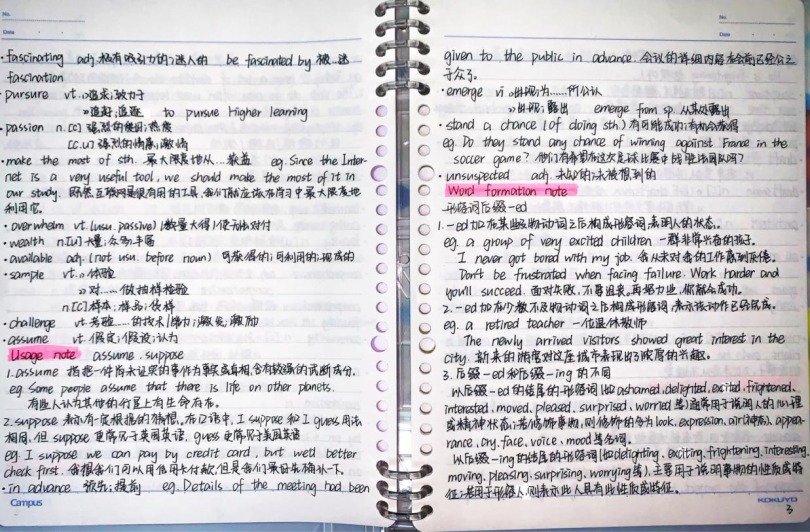 No.
Date
· fascinating adj. 极有吸引力的;迷人的 be fascinated by 被…迷
fascination
· pursure vt. 追求;致力于
追赶;追逐 to pursue Higher learning
· passion n.[C] 强烈的爱好;热度
[C.U] 强烈的情感;激情
· make the most of sth. 最大限度地从…获益 eg. Since the Inter-
net is a very useful tool, we should make the most of it in
our study. 既然互联网是很有用的工具,我们就应该在学习中最大限度地
利用它。
· overwhelm vt. (usu. passive) (数量大得)使无法对付
· wealth n.[U] 大量;众多;丰富
· available adj. (not usu. before noun) 可获得的;可利用的;现成的
· sample vt. 体验
对……做抽样检验
n.[C] 样本;样品;货样
· challenge vt. 考验……的技术/能力;激发;激励
· assume vt. 假定;假设;认为
Usage note assume. suppose
1. assume 指把一件尚未证实的事作为事实或真相,含有较强的武断成分。
eg. Some people assume that there is life on other planets.
有些人认为其他的行星上有生命存在。
2. suppose 表示有一定根据的猜想。在口语中, I suppose 和 I guess 用法
相同,但 suppose 更常见于英国英语, guess 更常见于美国英语
eg. I suppose we can pay by credit card, but we'd better
check first. 我想我们可以用信用卡付款,但是我们最好先确认一下。
· in advance 预先;提前 eg. Details of the meeting had been
Campus
No.
Date
given to the public in advance. 会议的详细内容在会前已经公之
于众了。
· emerge vi. 出现;为……所公认
出现;露出 emerge from sp. 从某处露出
· stand a chance (of doing sth.) 有可能成功;有机会获得
eg. Do they stand any chance of winning against France in the
soccer game? 他们有希望在这次足球比赛中战胜法国队吗?
· unsuspected adj. 未知的;未被想到的
Word formation note
形容词后缀 -ed
1. -ed 加在某些及物动词之后构成形容词,表明人的状态。
eg. a group of very excited children 一群非常兴奋的孩子。
I never got bored with my job. 我从来对我的工作感到厌倦。
Don't be frustrated when facing failure. Work harder and
you'll succeed. 面对失败,不要沮丧。再努力些,你就会成功。
2. -ed 加在少数不及物动词之后构成形容词,表示该动作已经完成。
eg. a retired teacher 一位退休教师
The newly arrived visitors showed great interest in the
city. 新来的游客对这座城市表现出了浓厚的兴趣。
3. 后缀 -ed 和后缀 -ing 的不同
以后缀 -ed 的结尾的形容词(如 ashamed, delighted, excited, frightened,
interested, moved, pleased, surprised, worried 等)通常用于说明人的心理
或精神状态;若修饰事物,则修饰的多为 look, expression, air(神态), appea-
rance, cry, face, voice, mood 等名词。
以后缀 -ing 的结尾的形容词(如 delighting, exciting, frightening, interesting,
moving, pleasing, surprising, worrying 等),主要用于说明事物的性质或特
征;若用于形容人,则表示此人具有此性质或特征。
KOKUYO
3